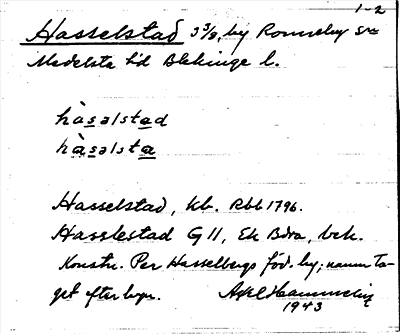 1-2
Hasselstad 3 3/8, by Ronneby sn
Medelsta hd Blekinge l.
hàsəlstad
hàsəlsta
Hasselstad, kb. Rbl 1796.
Hasslestad G 11, Ek Bdra, bek.
Konstn. Per Hasselbergs föd. by; namn ta-
get efter byn. Axel Hammelin
1943